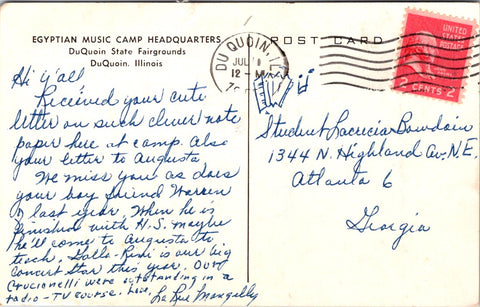 EGYPTIAN MUSIC CAMP HEADQUARTERS
DuQuoin State Fairgrounds
DuQuoin, Illinois
POST CARD
DU QUOIN, ILL
JUL
12 -M
UNITED
STATES
POSTAGE
2 CENTS 2
Hi Y'all
Received your cute
letter on such clever note
paper here at camp. Also
your letter to Augusta
We miss you as does
your boy friend Warren
of last year. When he is
finished with H.S. maybe
he'll come to Augusta to
teach. Lolla-Rudi is our big
concert star this year. Our
Crucionelli were outstanding in a
radio - TV course. Love, La Rue
Student Lacrecia Bowdoin
1344 N. Highland Av. N.E.
Atlanta 6
Georgia